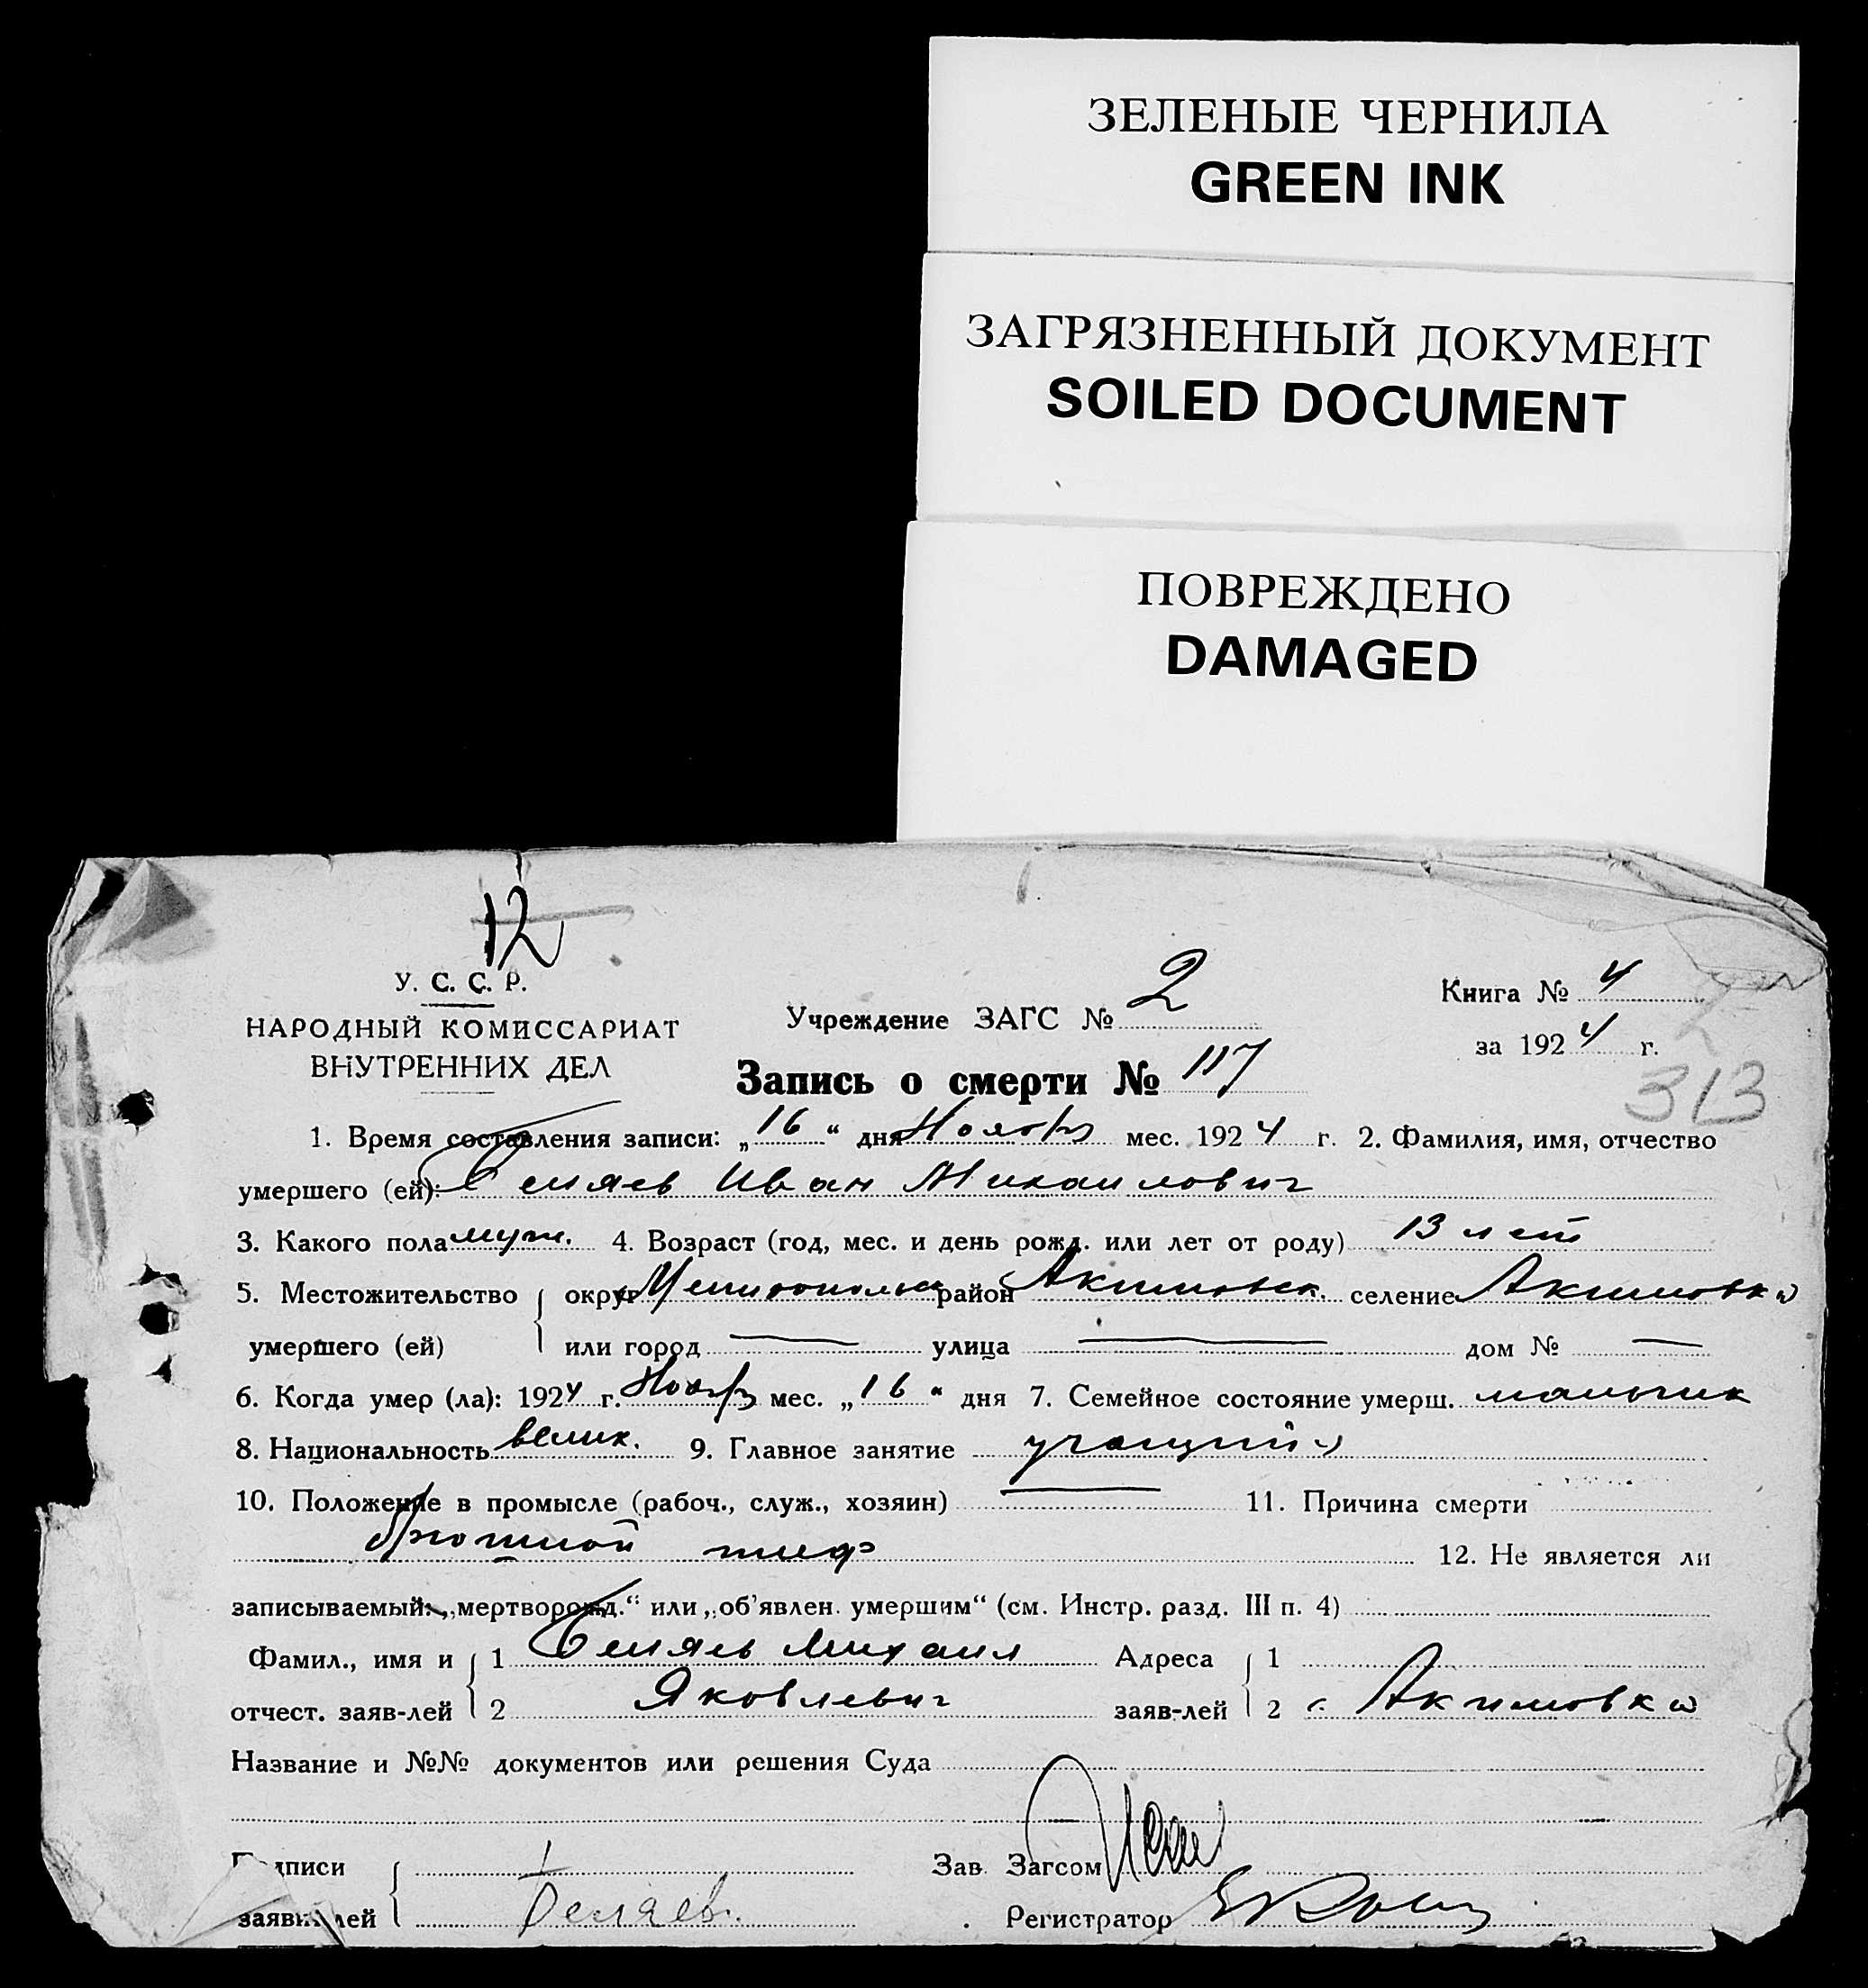 ЗЕЛЕНЫЕ ЧЕРНИЛА
GREEN INK
ЗАГРЯЗНЕННЫЙ ДОКУМЕНТ
SOILED DOCUMENT
ПОВРЕЖДЕНО
DAMAGED
12
У. С. С. Р.
НАРОДНЫЙ КОМИССАРИАТ
ВНУТРЕННИХ ДЕЛ
Учреждение ЗАГС № 2
Книга № 4
за 1924 г.
313
Запись о смерти № 117
1. Время составления записи: „16“ дня Ноября мес. 1924 г. 2. Фамилия, имя, отчество
умершего (ей): Беляев Иван Михаилович
3. Какого пола муж. 4. Возраст (год, мес. и день рожд. или лет от роду) 13 лет
5. Местожительство округ Мелитопольск район Акимовск. селение Акимовка
умершего (ей) или город — улица — дом № —
6. Когда умер (ла): 1924 г. Ноября мес. „16“ дня 7. Семейное состояние умерш. мальчик
8. Национальность велик. 9. Главное занятие учащийся
10. Положение в промысле (рабоч., служ., хозяин) — 11. Причина смерти
брюшной тиф 12. Не является ли
записываемый: „мертворожд.“ или „об'явлен. умершим“ (см. Инстр. разд. III п. 4)
Фамил., имя и 1 Беляев Михаил Адреса 1
отчест. заяв-лей 2 Яковлевич заяв-лей 2 с. Акимовка
Название и №№ документов или решения Суда
Зав. Загсом
заяви лей Беляев. Регистратор